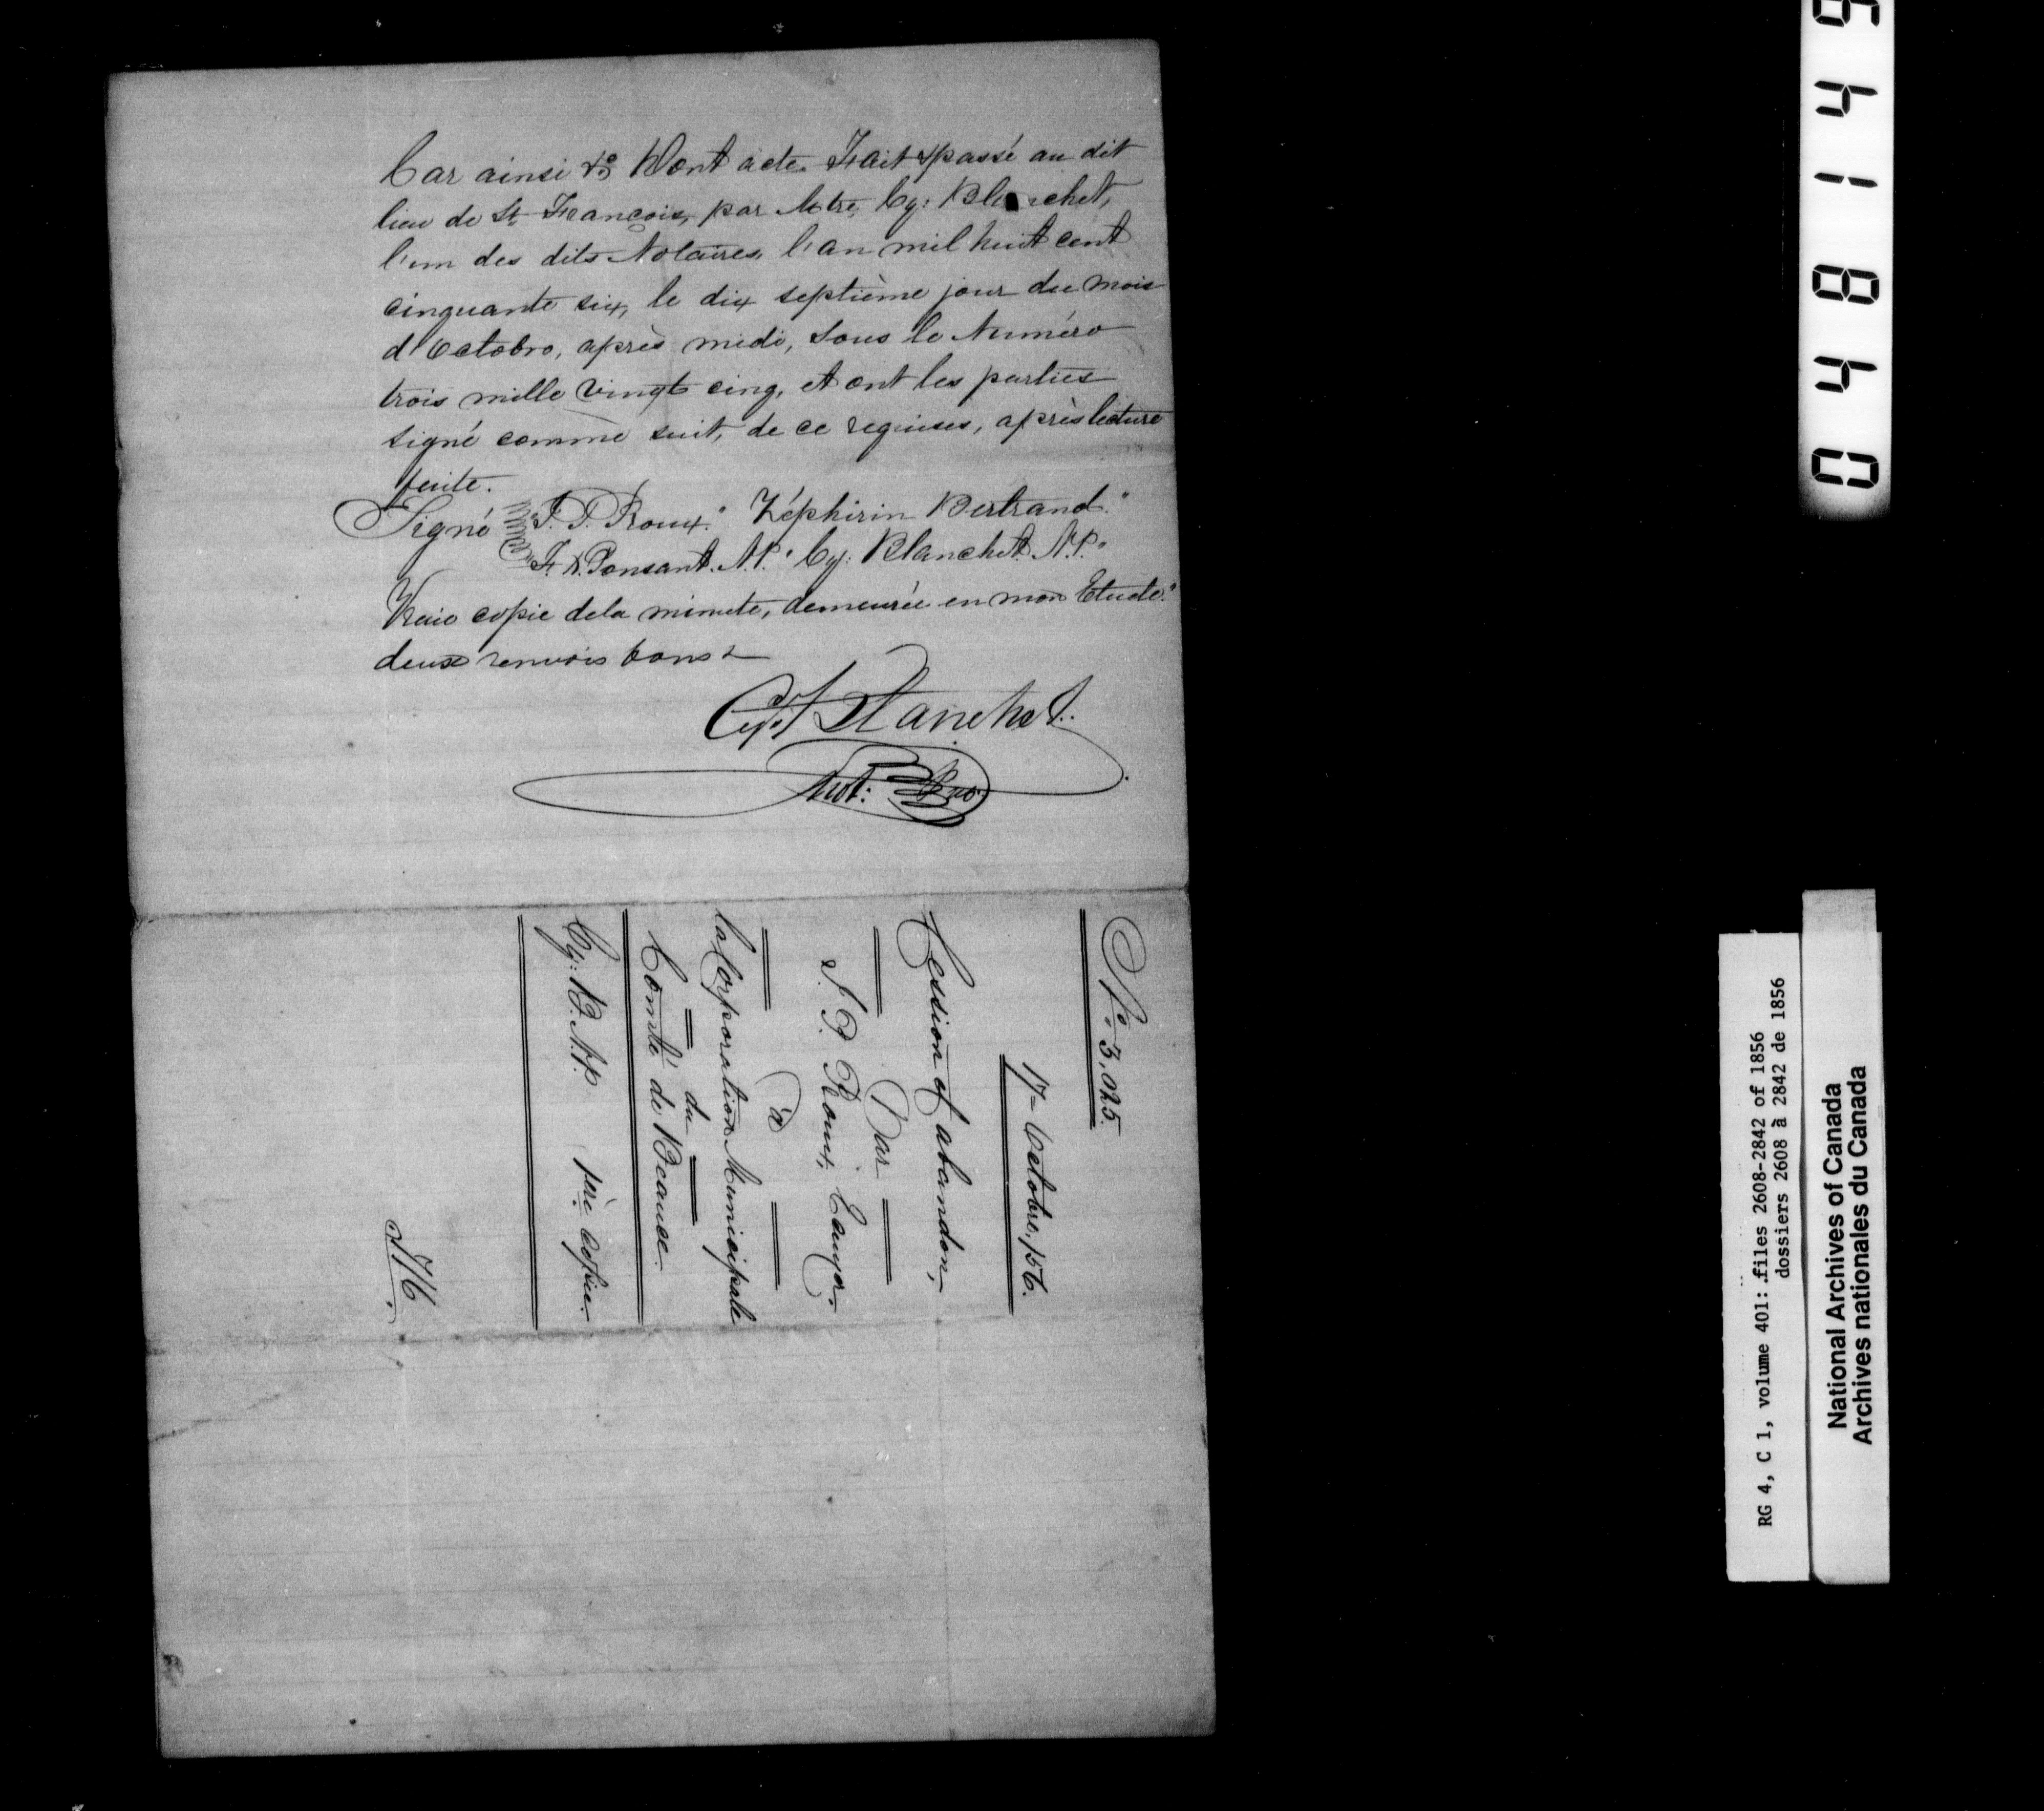 Car ainsi &c Dont acte. Fait & passé au dit
lieu de St François, par Mtre, Cy: Blanchet,
l'un des dits Notaires, l'an mil huit cent
cinquante six, le dix septième jour du mois
d'Octobre, après midi, sous le Numéro
trois mille vingt cinq, et ont les parties
signé comme suit, de ce requises, après lecture
faite.
Signé "J. P. Proulx." Zéphirin Bertrand."
F. X. Ponsant. N.P. " Cy: Blanchet. N.P."
Vraie copie de la minute, demeurée en mon Etude."
deux renvois bons
Blanchet
Not: Pub
No. 3,025.
17 = Octobre, 1856.
Cession & abandon,
Par
J. P. Proulx, Ecuyer,
à
la Corporation Municipale
du
Comté de Beauce.
Cy: B. N.P. 1ère copie.
04814
RG 4, C 1, volume 401: files 2608-2842 of 1856
dossiers 2608 à 2842 de 1856
National Archives of Canada
Archives nationales du Canada